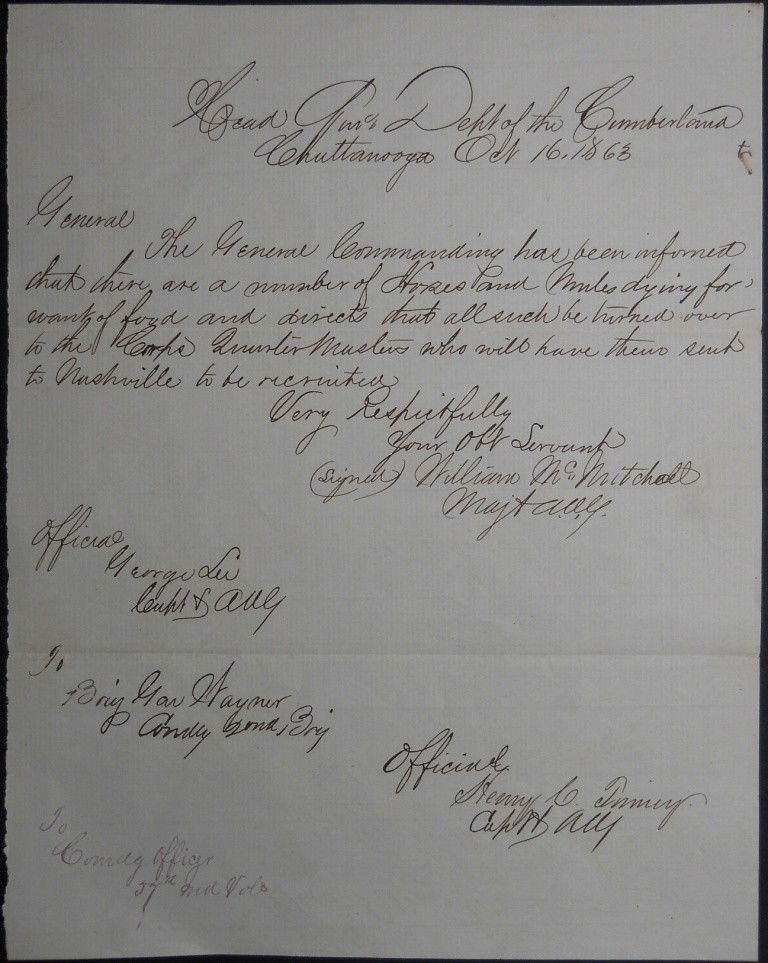 Head Qurs Dept of the Cumberland
Chattanooga Oct 16. 1863
General
The General Commanding has been informed
that there are a number of Horses and Mules dying for
want of food and directs that all such be turned over
to the Corps Quarter Masters who will have them sent
to Nashville to be recruited
Very Respectfully
Your Obt Servant
(Signed) William Mc Mitchell
Maj & A.A.G.
Official
George Lee
Capt & AAG
To
Brig Gen Wagner
Comdg 2ond Brig
Official
Henry C. Tinney
Capt & AAG
To
Comdg Officer
57th Ind Vols